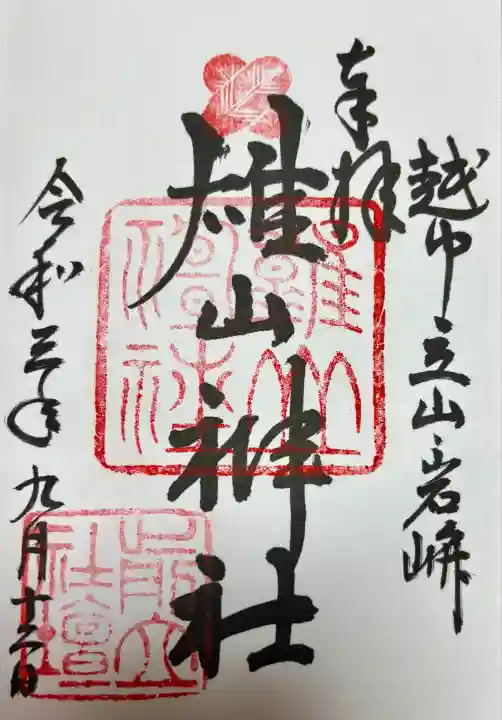 越中立山岩峅
奉拝
雄山神社
雄山
神社
前立
社壇
令和三年九月十日